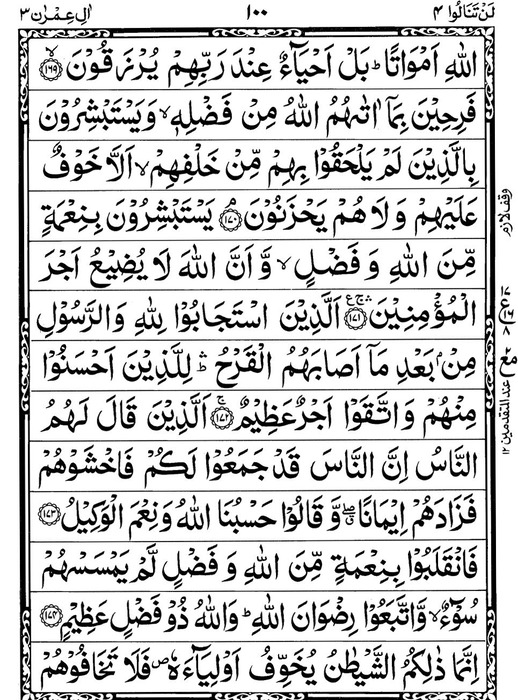 لَنْ تَنَالُوا ۴
۱۰۰
اٰل عِمْرٰن ۳
اللّٰهِ اَمْوَاتًا ؕ بَلْ اَحْيَآءٌ عِنْدَ رَبِّهِمْ يُرْزَقُوْنَ ۙ﴿۱۶۹﴾
فَرِحِيْنَ بِمَاۤ اٰتٰىهُمُ اللّٰهُ مِنْ فَضْلِهٖ ۙ وَيَسْتَبْشِرُوْنَ
بِالَّذِيْنَ لَمْ يَلْحَقُوْا بِهِمْ مِّنْ خَلْفِهِمْ ۙ اَلَّا خَوْفٌ
عَلَيْهِمْ وَلَا هُمْ يَحْزَنُوْنَ ۘ﴿۱۷۰﴾ يَسْتَبْشِرُوْنَ بِنِعْمَةٍ
مِّنَ اللّٰهِ وَفَضْلٍ ۙ وَّاَنَّ اللّٰهَ لَا يُضِيْعُ اَجْرَ
الْمُؤْمِنِيْنَ ۚ ۛ ع﴿۱۷۱﴾ اَلَّذِيْنَ اسْتَجَابُوْا لِلّٰهِ وَالرَّسُوْلِ
مِنْۢ بَعْدِ مَاۤ اَصَابَهُمُ الْقَرْحُ ۛؕ لِلَّذِيْنَ اَحْسَنُوْا
مِنْهُمْ وَاتَّقَوْا اَجْرٌ عَظِيْمٌ ۚ﴿۱۷۲﴾ اَلَّذِيْنَ قَالَ لَهُمُ
النَّاسُ اِنَّ النَّاسَ قَدْ جَمَعُوْا لَكُمْ فَاخْشَوْهُمْ
فَزَادَهُمْ اِيْمَانًا ۖ ق وَّقَالُوْا حَسْبُنَا اللّٰهُ وَنِعْمَ الْوَكِيْلُ ﴿۱۷۳﴾
فَانْقَلَبُوْا بِنِعْمَةٍ مِّنَ اللّٰهِ وَفَضْلٍ لَّمْ يَمْسَسْهُمْ
سُوْٓءٌ ۙ وَّاتَّبَعُوْا رِضْوَانَ اللّٰهِ ؕ وَاللّٰهُ ذُوْ فَضْلٍ عَظِيْمٍ ﴿۱۷۴﴾
اِنَّمَا ذٰلِكُمُ الشَّيْطٰنُ يُخَوِّفُ اَوْلِيَآءَهٗ ۪ فَلَا تَخَافُوْهُمْ
وقف لازم
مع عند المتقدمين ۱۲